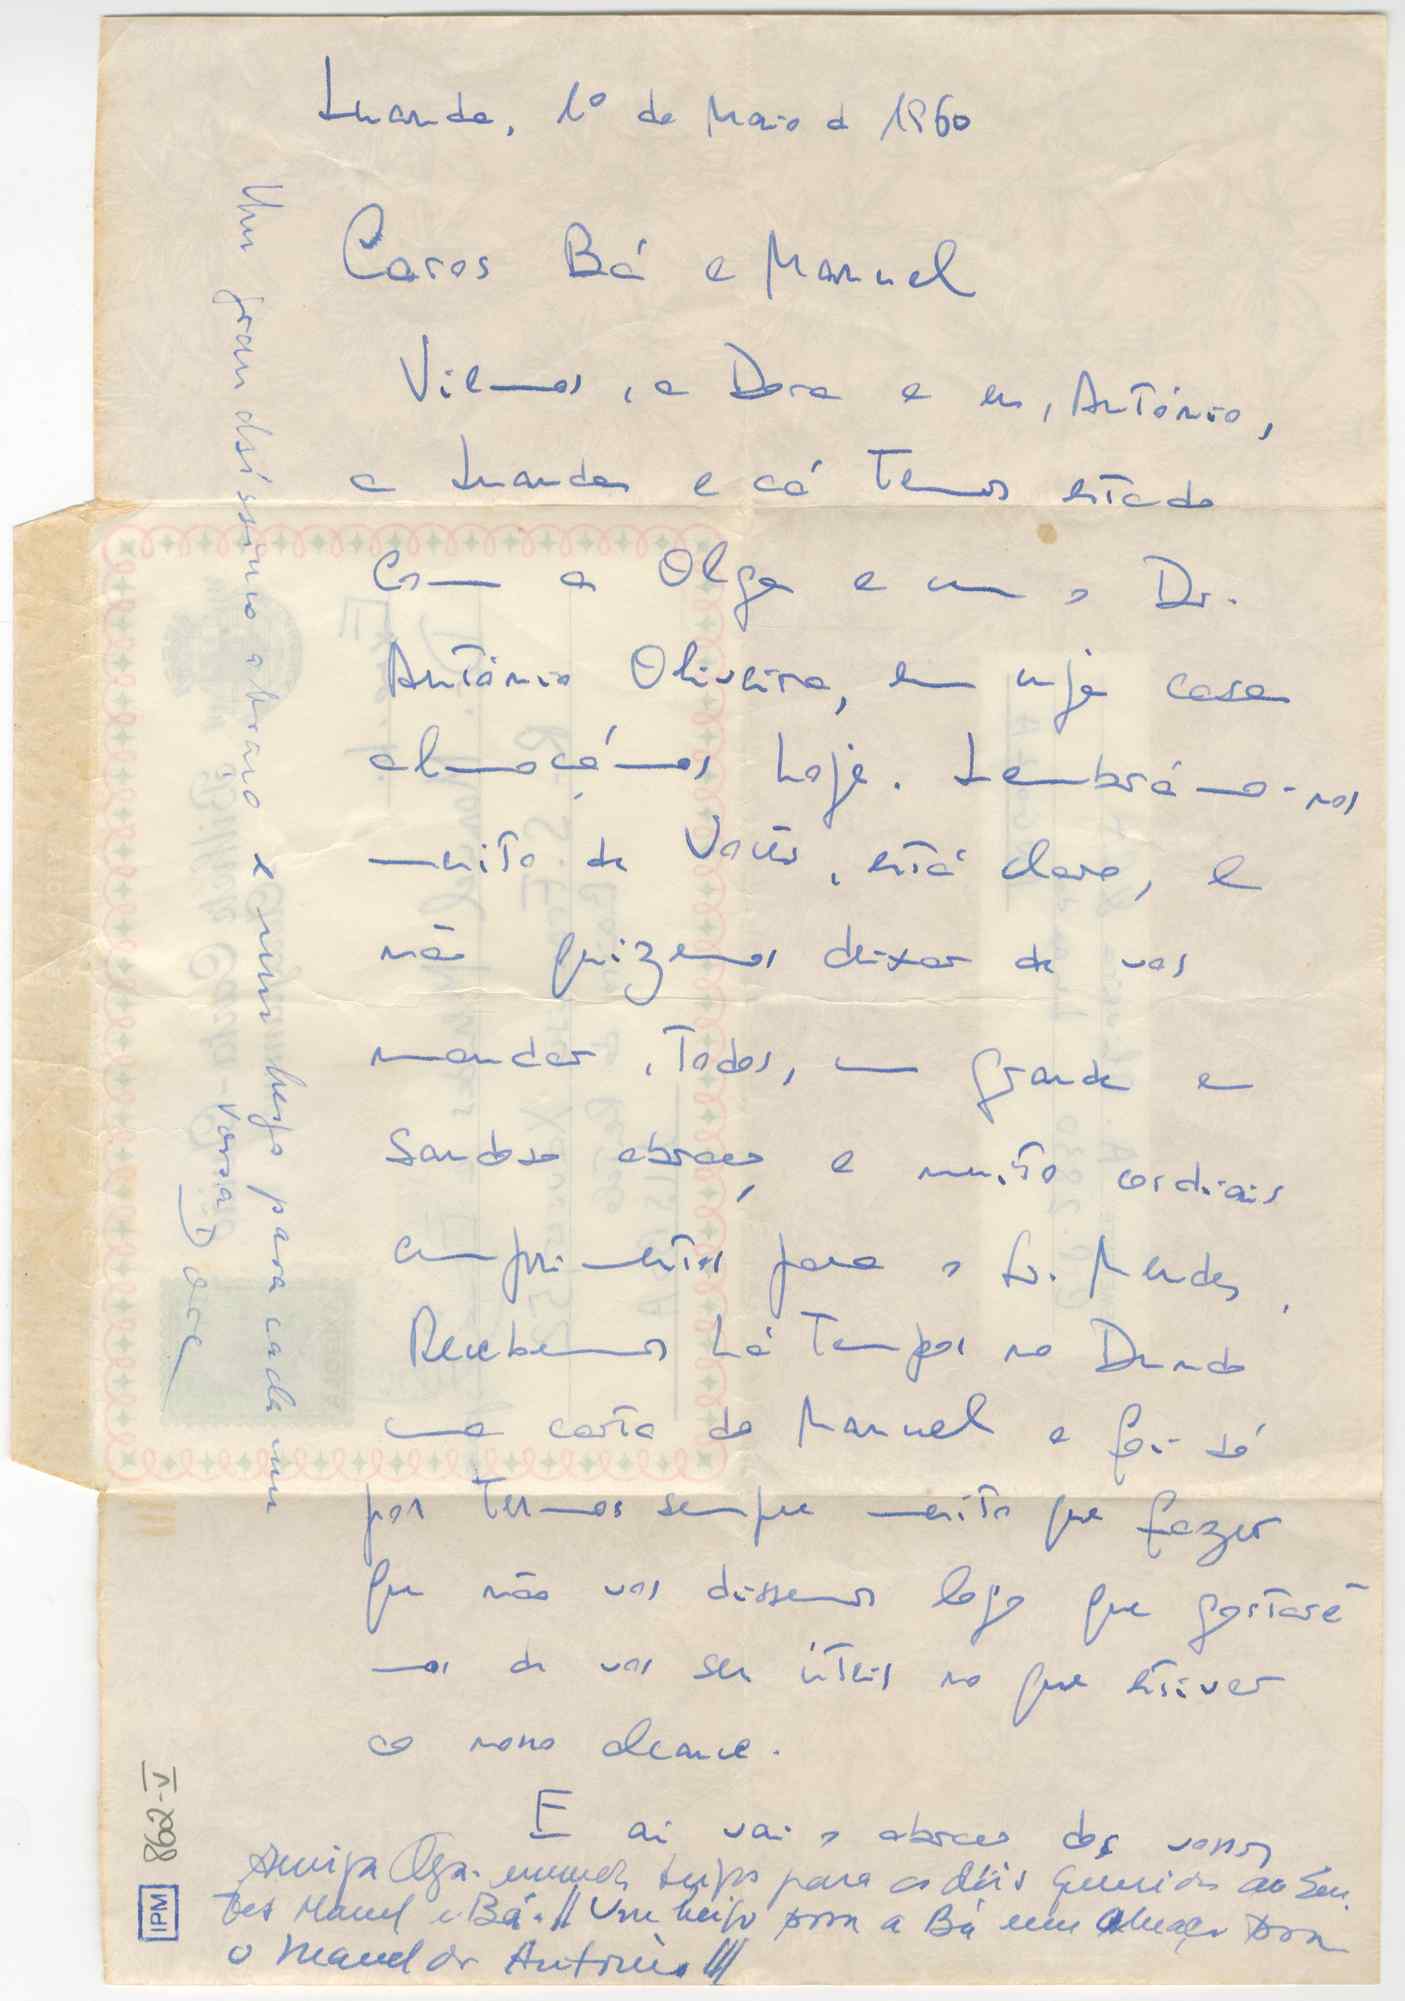 Luanda, 1º de Maio de 1960
Caros Bá e Manuel
Viemos, a Dora e eu, António,
a Luanda e cá temos estado
com a Olga e com o Dr.
António Oliveira, em cuja casa
almoçámos hoje. Lembrámo-nos
muito de Vocês, está claro, e
não quizemos deixar de vos
mandar, todos, um grande e
saudoso abraço, e muito cordiais
cumprimentos para o Sr. Mendes.
Recebemos há tempos no Dundo
uma carta do Manuel e foi só
por termos sempre muito que fazer
que não vos dissemos logo que gostaría
mos de vos ser úteis no que estiver
ao nosso alcance.
E aí vai o abraço dos vossos
Amiga Olga. para os dois queridos
Manuel e Bá. !! Um beijo para a Bá e um abraço para
o Manuel do António !!!
Um grandíssimo abraço e um beijo para cada um
Vossa Dora
IPM 862-V